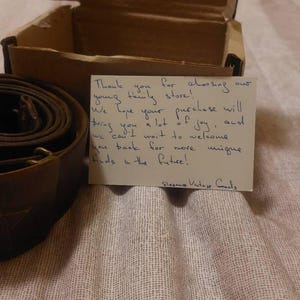 Thank you for choosing our
young family store!
We hope your purchase will
bring you a lot of joy, and
we can't wait to welcome
you back for more unique
finds in the future!
Vintage Goods